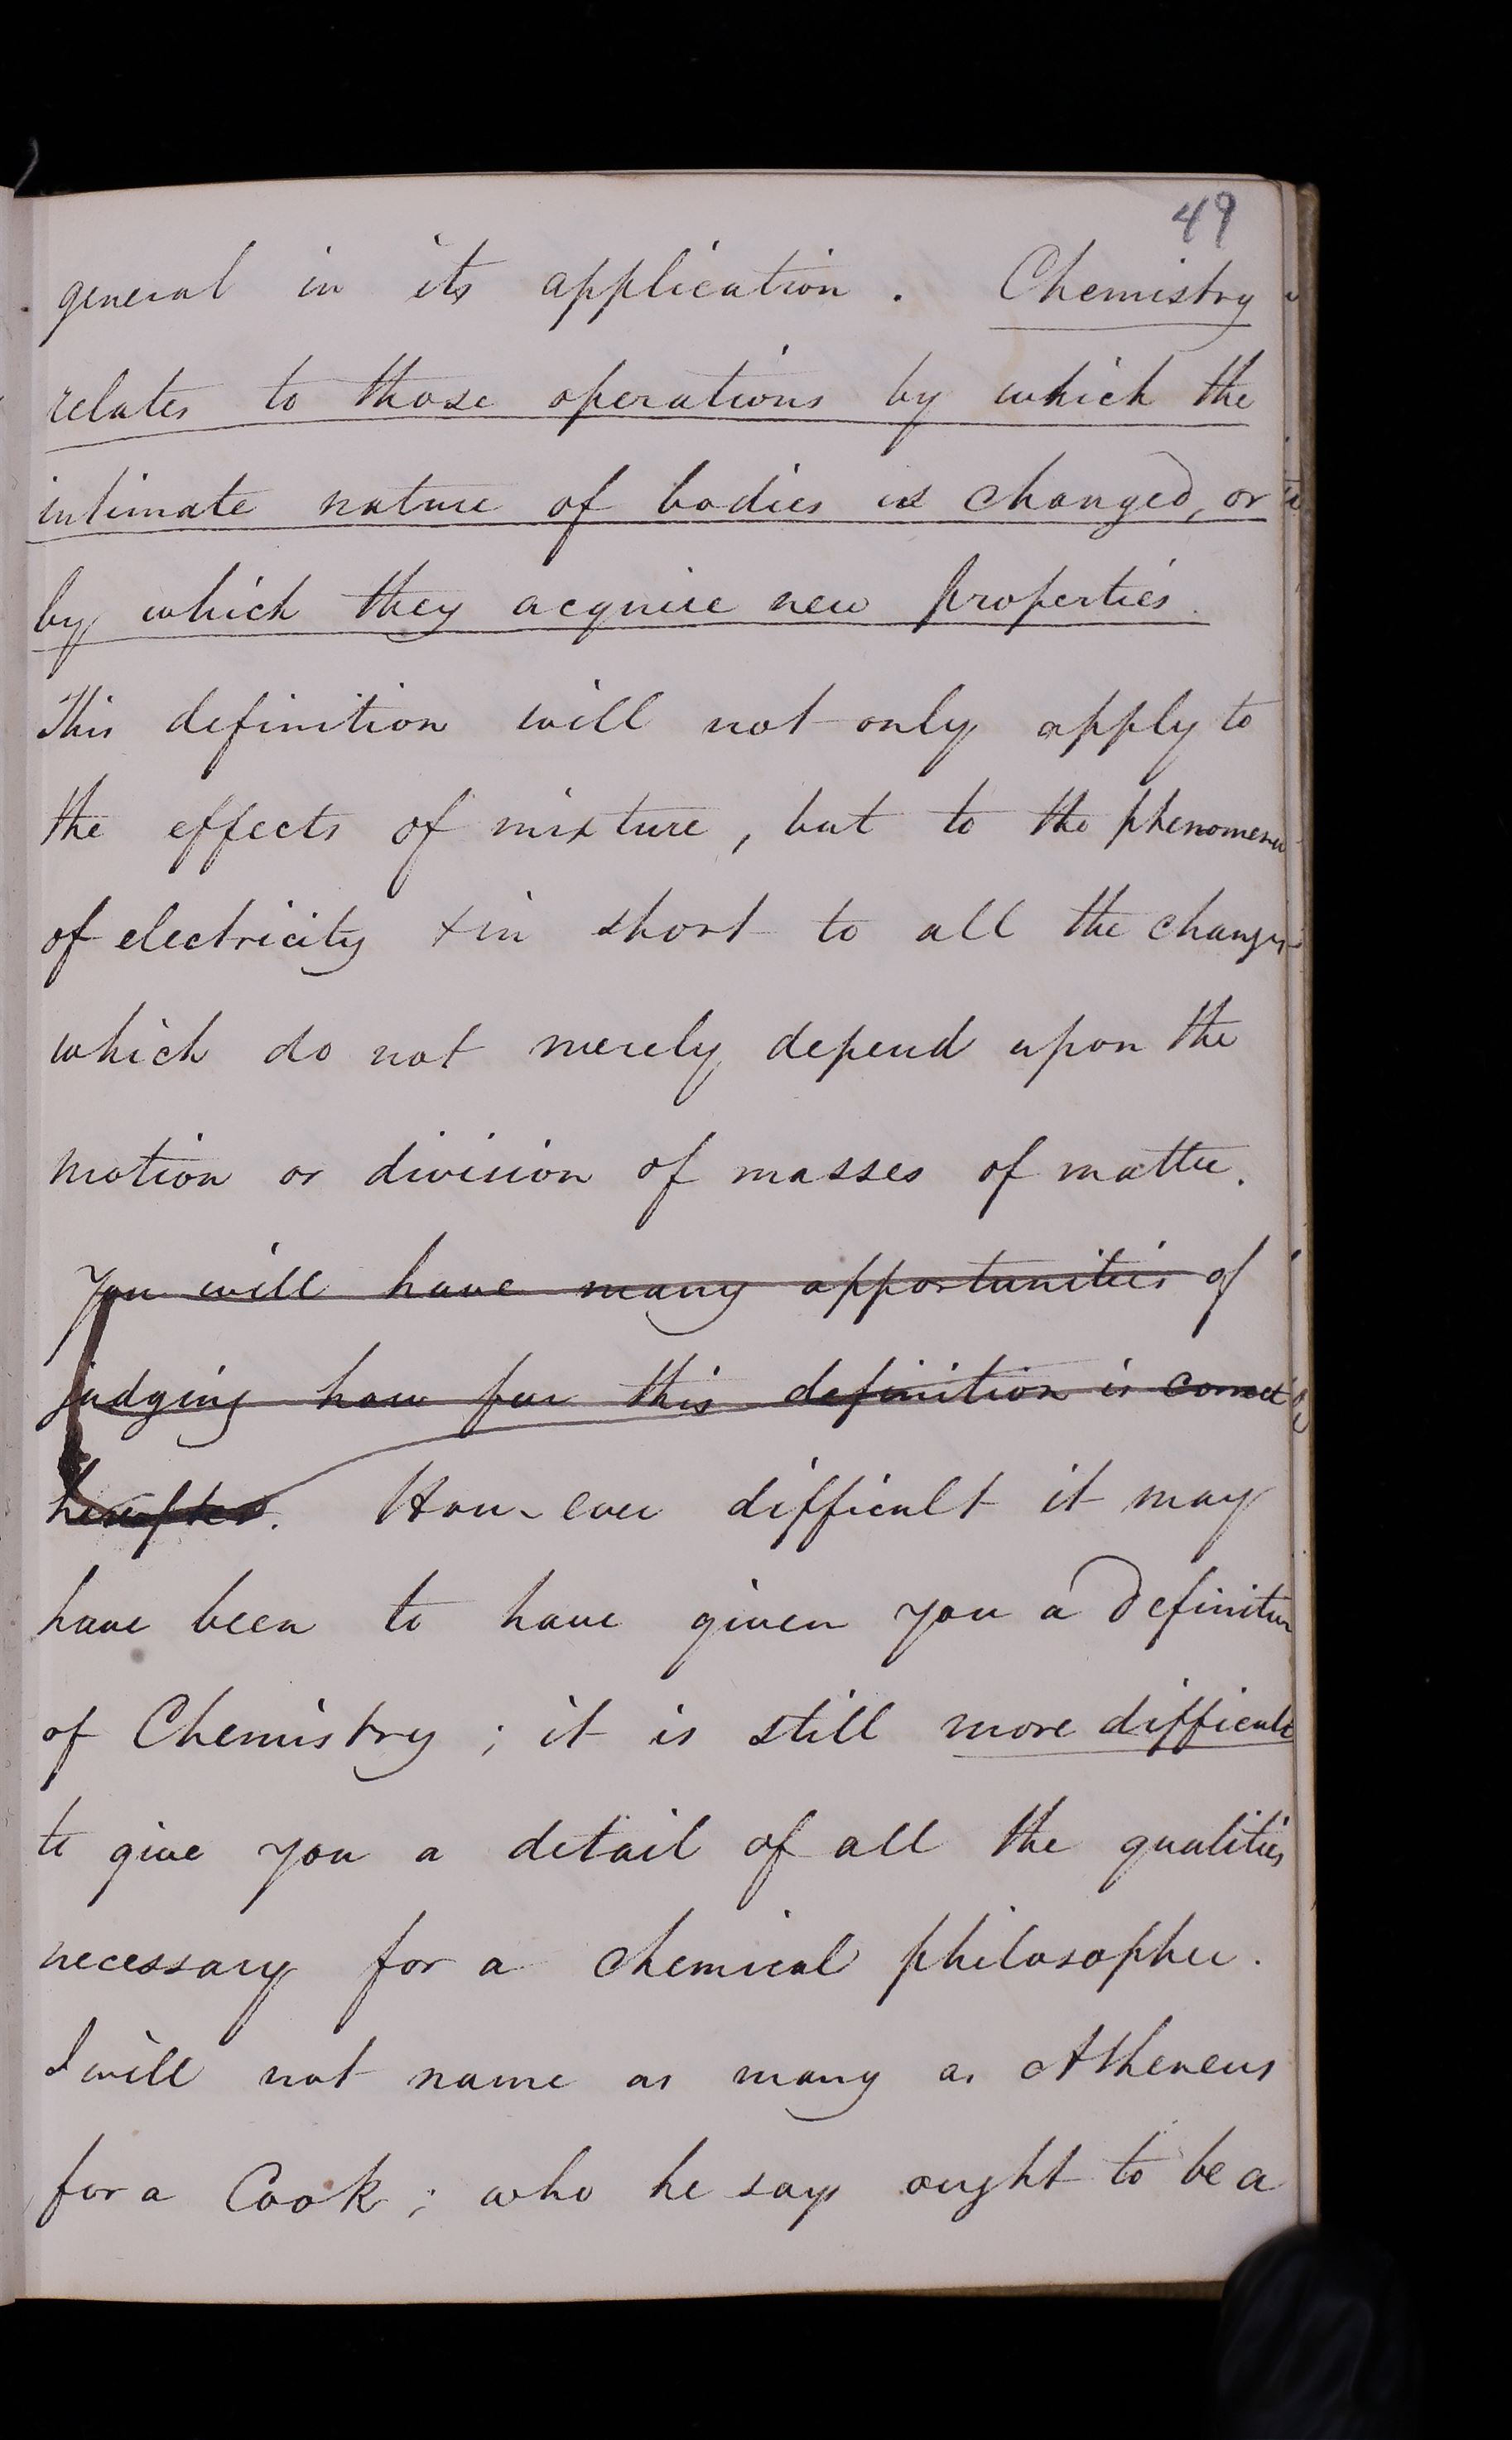 49
general in its application. Chemistry
relates to those operations by which the
intimate nature of bodies is changed, or
by which they acquire new properties.
This definition will not only apply to
the effects of mixture, but to the phenomena
of electricity + in short to all the changes
which do not merely depend upon the
motion or division of masses of matter.
You will have many opportunities of
judging how far this definition is correct
hereafter. How-ever difficult it may
have been to have given you a definition
of Chemistry; it is still more difficult
to give you a detail of all the qualities
necessary for a chemical philosopher.
I will not name as many as Atheneus
for a Cook; who he says ought to be a